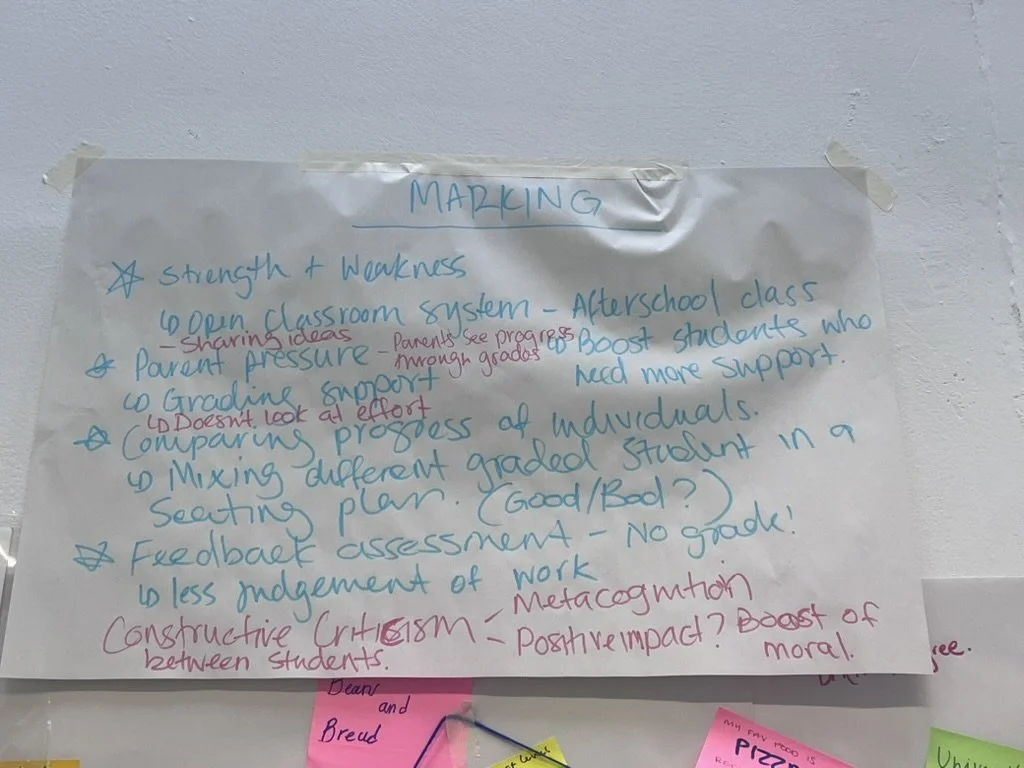 MARKING
☆ Strength + Weakness
↳ Open Classroom system - Afterschool class
- Sharing ideas
↳ Boost students who
need more support.
☆ Parent pressure - Parents see progress
through grades
↳ Grading support
↳ Doesn't look at effort
☆ Comparing progress of individuals.
↳ Mixing different graded student in a
Seating plan. (Good/Bad?)
☆ Feedback assessment - No grade!
↳ less judgement of work
Constructive Criticism - Metacognition
between students.
- Positive impact? Boost of
moral.
ree.
Bean
and
Bread
MY FAV FOOD IS
PIZZ
Univer